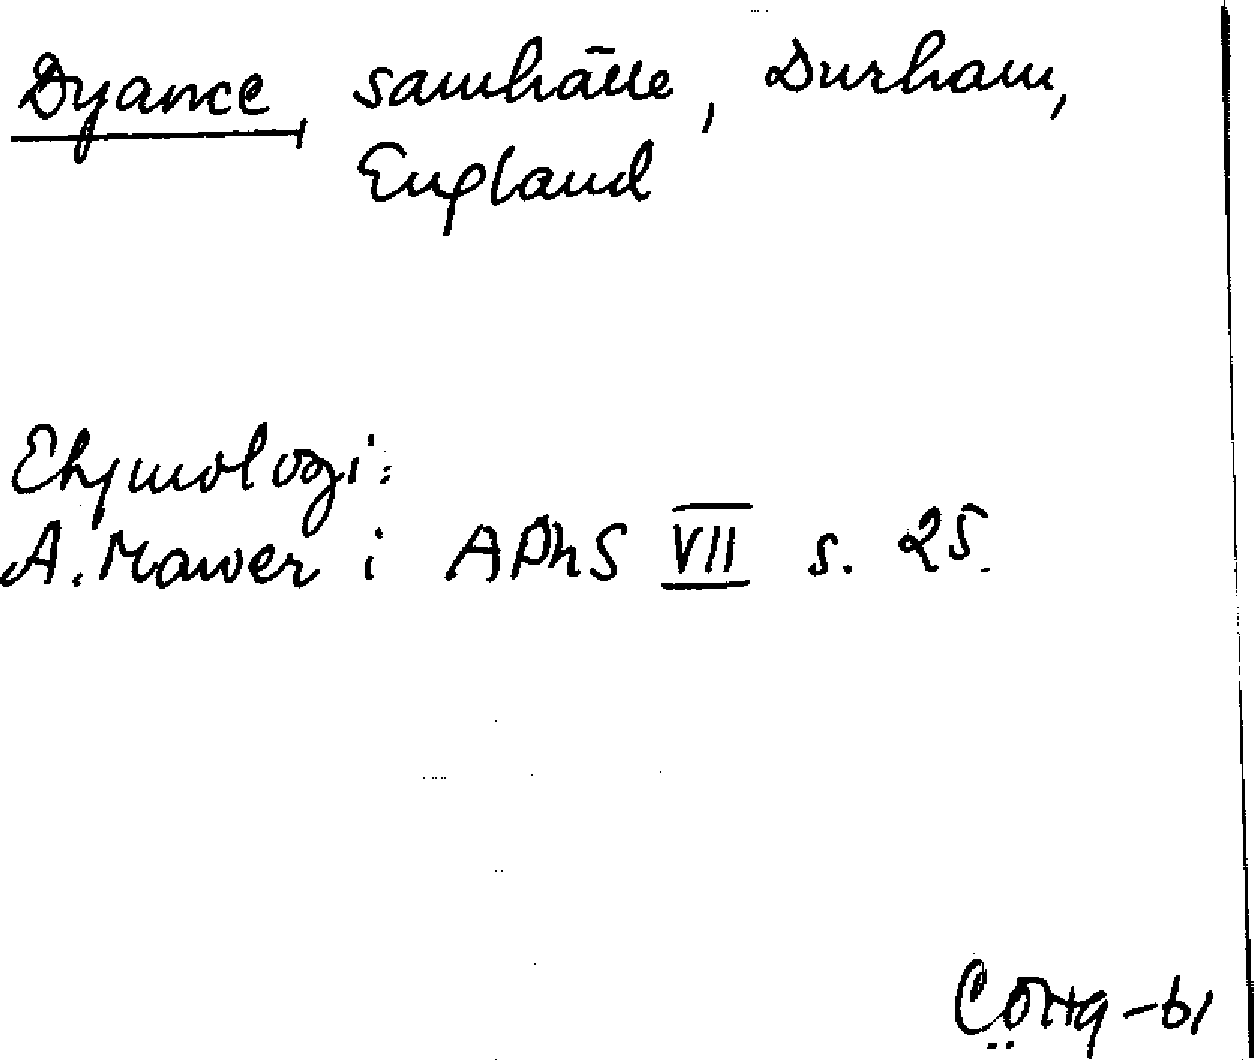 Dyance samhälle, Durham,
England
Etymologi:
A. Mawer i APhS VII s. 25.